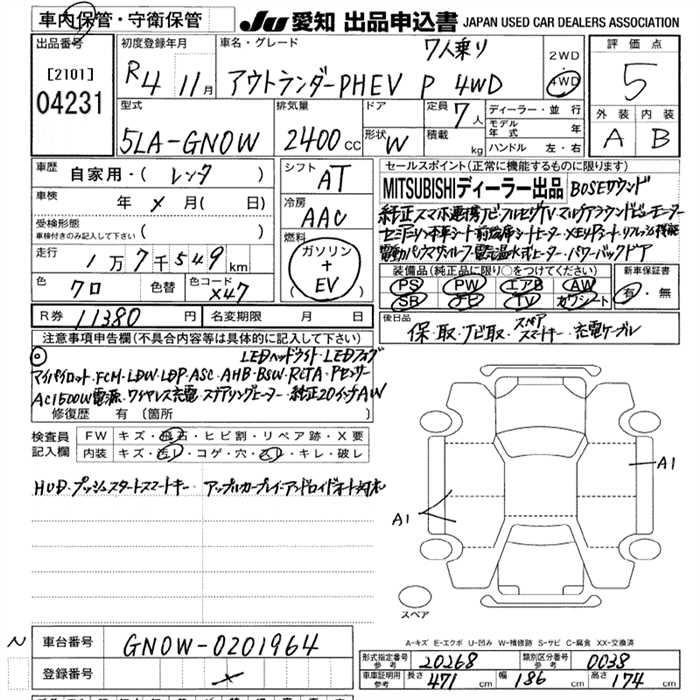 車内保管・守衛保管
JU 愛知 出品申込書 JAPAN USED CAR DEALERS ASSOCIATION
出品番号
[2101]
04231
初度登録年月
R4 11月
車名・グレード
7人乗り
アウトランダーPHEV P 4WD
2WD
・
4WD
評価点
5
外装 内装
A B
型式
5LA-GN0W
排気量
2400cc
ドア
形状 W
定員 7人
積載 kg
ディーラー・並行
モデル年式 年
ハンドル 左・右
車歴
自家用・( レンタ )
車検
年 × 月( 日)
受検形態
車検付きのみ記入して下さい ( )
走行
1万7千549km
色 クロ 色替 色コード X47
シフト AT
冷房 AAC
燃料
ガソリン
+
EV
セールスポイント(正常に機能するものに限ります)
MITSUBISHIディーラー出品 BOSEサウンド
純正スマホ連携ナビ・フルセグTV・マルチアラウンドビューモニター
電動パノラマサンルーフ・電気温水式ヒーター・パワーバックドア
装備品(純正品に限り○をつけてください)
PS PW エアB AW
SB ナビ TV カワシート
新車保証書
有・無
R券 11380円 名変期限 月 日
後日品
保・取・ナビ取・スペアスマートキー・充電ケーブル
注意事項申告欄(不具合内容等は具体的に記入して下さい)
LEDヘッドライト・LEDフォグ
マイパイロット・FCM・LDW・LDP・ASC・AHB・BSW・RCTA・Pセンサー
AC1500W電源・ワイヤレス充電・ステアリングヒーター・純正20インチAW
修復歴 有 (箇所 )
検査員記入欄
FW キズ・飛石・ヒビ割・リペア跡・X要
内装 キズ・汚レ・コゲ・穴・スレ・キレ・破レ
HUD・プッシュスタートスマートキー・アップルカープレイ・アンドロイドオート対応
A1
A1
スペア
A-キズ E-エクボ U-凹み W-補修跡 S-サビ C-腐食 XX-交換済
N 車台番号 GN0W-0201964
登録番号 ×
形式指定番号 参考 20268 類別区分番号 参考 0038
車庫証明用 参考 長さ 471 cm 幅 186 cm 高さ 174 cm